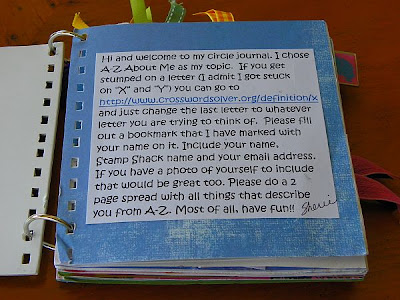 Hi and welcome to my circle journal. I chose
A-Z About Me as my topic. If you get
stumped on a letter (I admit I got stuck
on "X" and "Y") you can go to
http://www.crosswordsolver.org/definition/x
and just change the last letter to whatever
letter you are trying to think of. Please fill
out a bookmark that I have marked with
your name on it. Include your name,
Stamp Shack name and your email address.
If you have a photo of yourself to include
that would be great too. Please do a 2
page spread with all things that describe
you from A-Z. Most of all, have fun!! Sherii